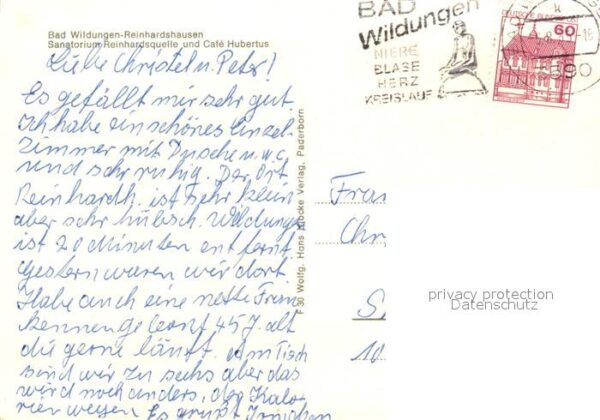 Bad Wildungen-Reinhardshausen
Sanatorium Reinhardsquelle und Café Hubertus
Liebe Christel u. Peter!
Es gefällt mir sehr gut.
Ich habe ein schönes Einzel-
zimmer mit Dusche u. wc
und sehr ruhig. Der Ort
Reinhardth. ist sehr klein
aber sehr hübsch. Wildungen
ist 20 Minuten entfernt,
gestern waren wir dort
Habe auch eine nette Frau
kennengelernt 45 J. alt
die gerne läuft. Am Tisch
sind wir zu sechs aber das
wird noch anders, der Kalo-
rien wegen. Es grüßt
F 30 Wolfg. Hans Klocke Verlag, Paderborn
BAD
Wildungen
NIERE
BLASE
HERZ
KREISLAUF
DEUTSCHE BUNDES
60
k
-18
3590
Frau
Chr
S
10
privacy protection
Datenschutz